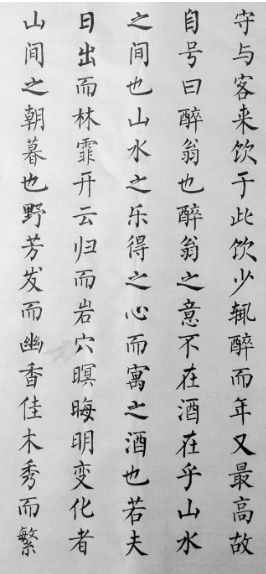 守与客来饮于此饮少辄醉而年又最高故
自号曰醉翁也醉翁之意不在酒在乎山水
之间也山水之乐得之心而寓之酒也若夫
日出而林霏开云归而岩穴暝晦明变化者
山间之朝暮也野芳发而幽香佳木秀而繁